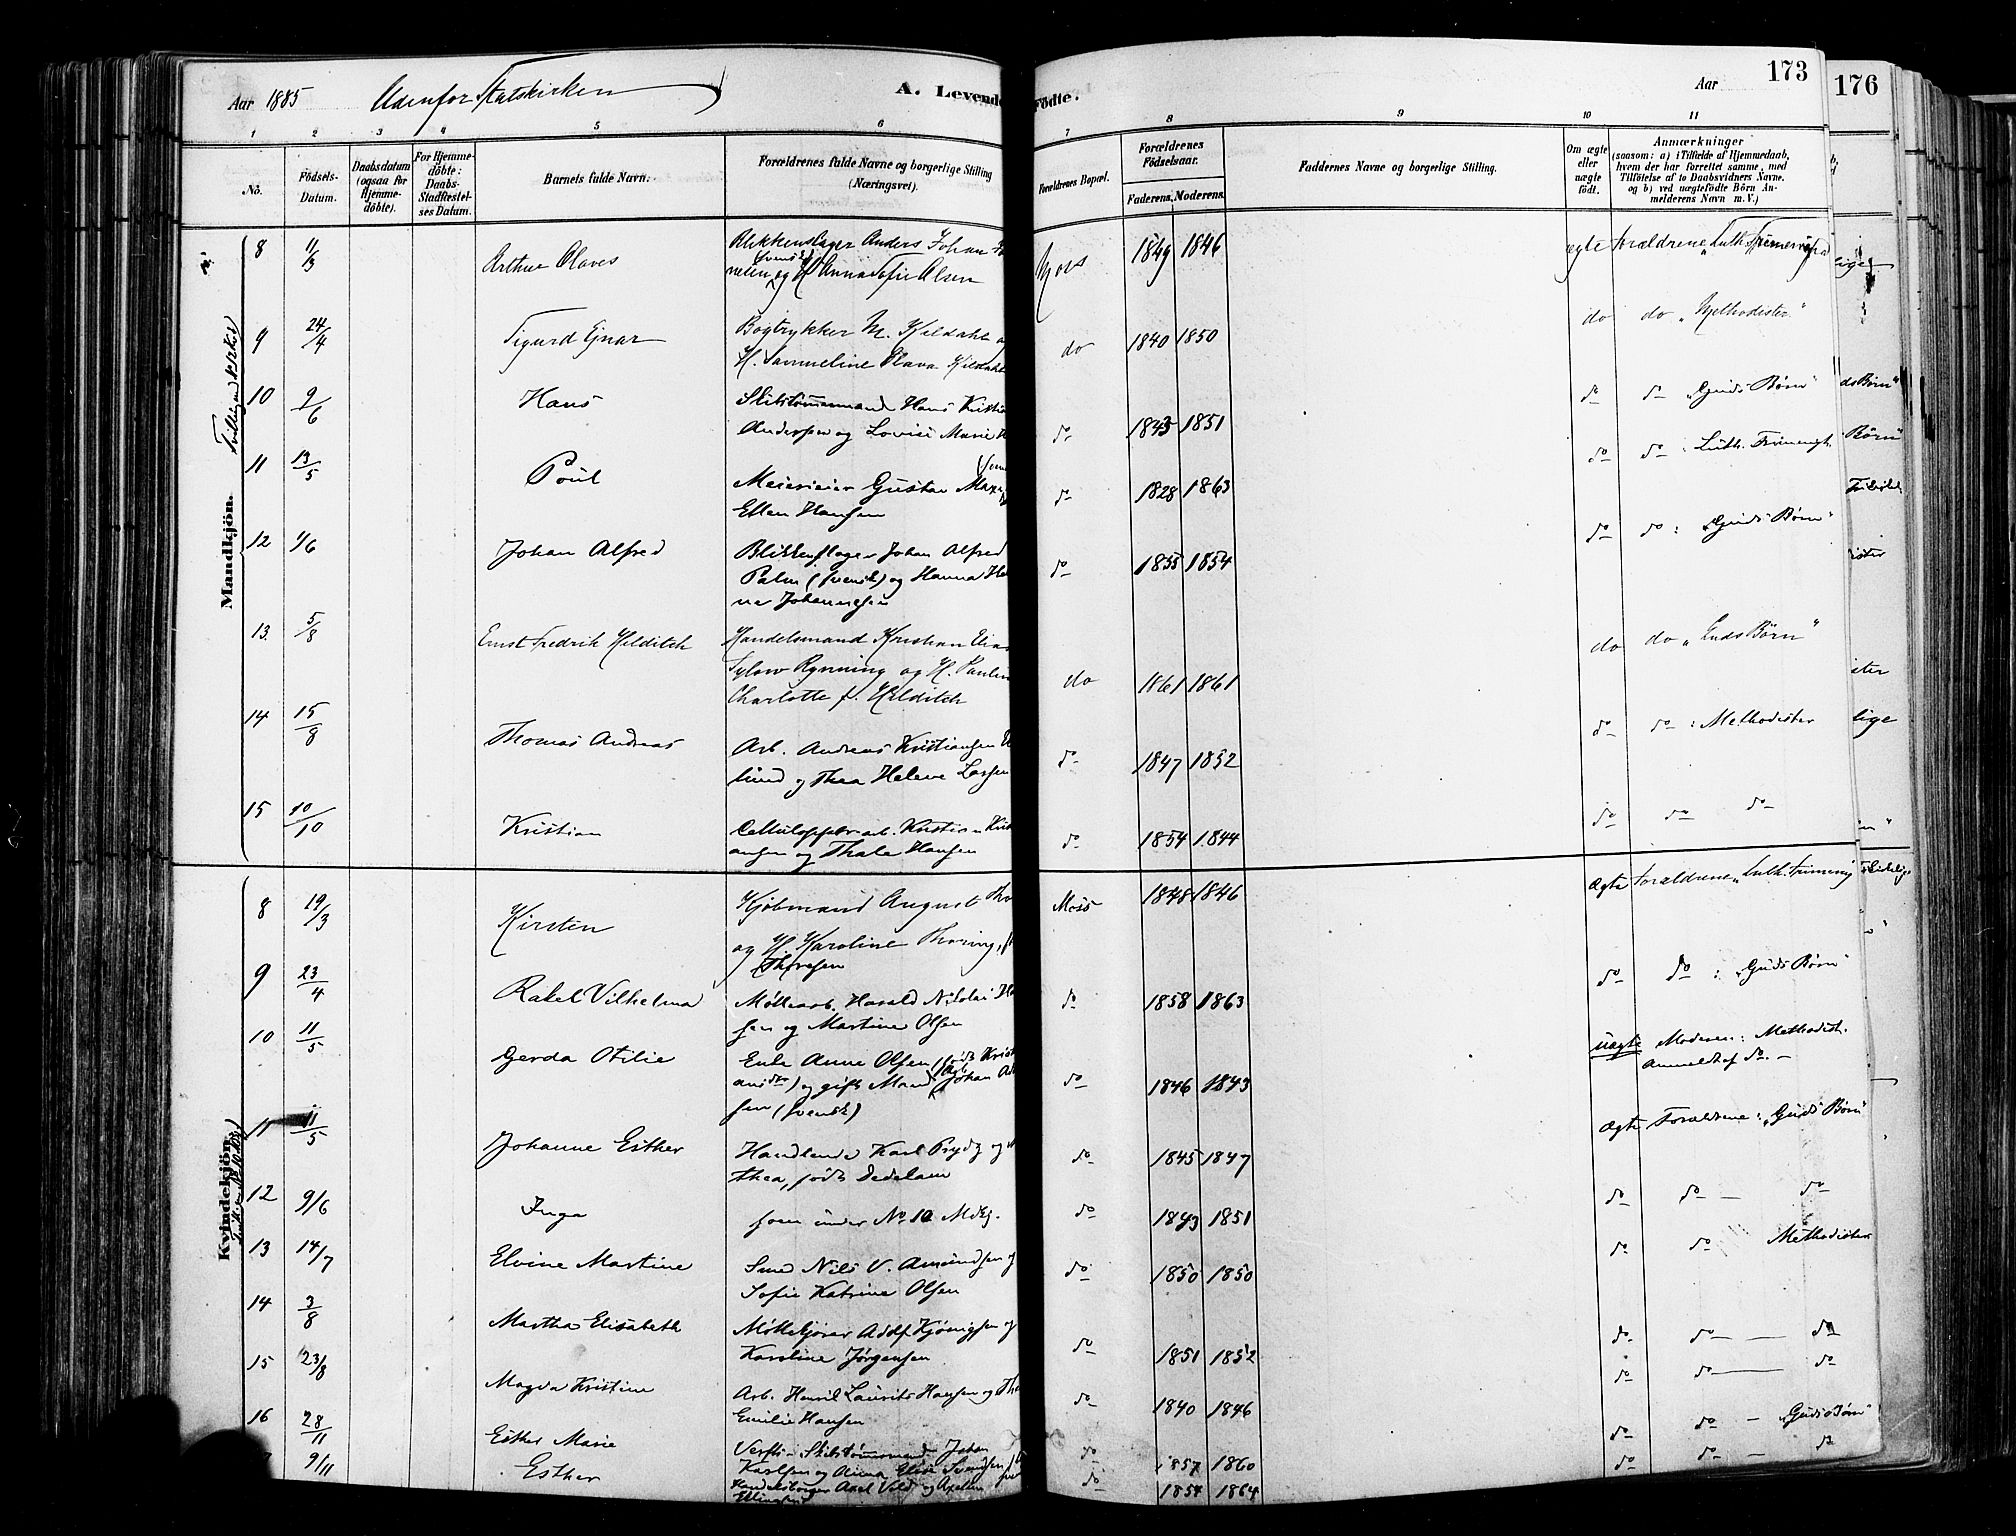 Aar 1885 Udenfor Statskirken A. Levende Födte. Aar 173 176
1 2 3 4 5 6 7 8 9 10 11
No. Födsels-Datum. Daabsdatum (ogsaa for Hjemmedöbte). For Hjemmedöbte: Daabs-Stadfæstelses Datum. Barnets fulde Navn. Forældrenes fulde Navne og borgerlige Stilling (Næringsvei). Forældrenes Bopæl. Forældrenes Födselsaar. Faderens. Moderens. Faddernes Navne og borgerlige Stilling. Om ægte eller uægte födt. Anmærkninger
(saasom: a) i Tilfælde af Hjemmedaab, hvem der har forrettet samme, med Tilföielse af to Daabsvidners Navne. og b) ved uægtefödte Börn Anmelderens Navn m. V.)
Mandkjön.
8 11/3 Arthur Olaves Blikkenslager Anders Johan
(svensk) og H. Anna Sofie Olsen Moss 1849 1846 ægte Forældrene „Luth. Frimenigh
9 24/4 Sigurd Ejnar Bogtrykker M. Kildahl og
H. Samueline Olava Kildahl do 1840 1850 do do „Methodister"
10 9/6 Hans Skibstømmermand Hans Kristi
Andersen og Lovise Marie do 1843 1851 do do „Guds Børn"
11 13/5 Poul Meierieier Gustav
Ellen Hansen do 1828 1863 do do : Luth. Frimenigh.
12 1/6 Johan Alfred Blikkenslager Johan Alfred
Palm (svensk) og Hanna He
ne Johannesen do 1855 1854 do do : „Guds Børn"
13 5/8 Ernst Fredrik Hilditch Handelsmand Kristian Elias
Sylow Rynning og H. Pauline
Charlotte f. Hilditch do 1861 1861 do do „Guds Børn"
14 15/8 Thomas Andreas Arb. Andreas Kristiansen
lund og Thea Helene Larsen do 1847 1852 do do : Methodister
15 10/10 Kristian Cellulosearb. Kristian Krist
ansen og Thale Hansen do 1854 1844 do do do
Kvindekjön.
8 19/3 Kirsten Kjøbmand August Tho
og H. Karoline Thoring, f.
Thoresen Moss 1848 1846 ægte Forældrene „Luth. Frimenig
9 23/4 Rakel Vilhelma Møllearb. Harald Nicolai Ha
sen og Martine Olsen do 1858 1863 do do : „Guds Børn"
10 11/5 Gerda Otilie Enke Anne Olsen (født Kristi
ansdtr) og gift Mand Arb. Johan
sen (svensk) do 1846 1843 uægte Moderen: Methodist.
Anmeldt af do. —
11 11/5 Johanne Esther Handlende Karl Prydz og
thea, født Dedekam do 1845 1847 ægte Forældrene: „Guds Børn"
12 9/6 Inga som under No 10 Mdkj. do 1843 1851 do do — do
13 14/7 Elvine Martine Smed Nils V. Amundsen og
Sofie Katrine Olsen do 1850 1850 do do Methodister
14 3/8 Martha Elisabeth Møllekjører Adolf Kjønigsen og
Karoline Jørgensen do 1851 1852 do do — do
15 23/8 Magda Kristine Arb. Henrik Laurits Hansen og Th
Emilie Hansen do 1840 1846 do do — do
16 28/11 Esther Marie Verfts-Skibstømmermand Johan
Karlsen og Anna Elise Svendsen do 1857 1860 do do — „Guds Børn"
9/11 Esther Handelsborger Axel Vold og
Ellingsen do 1854 1864 do do — do